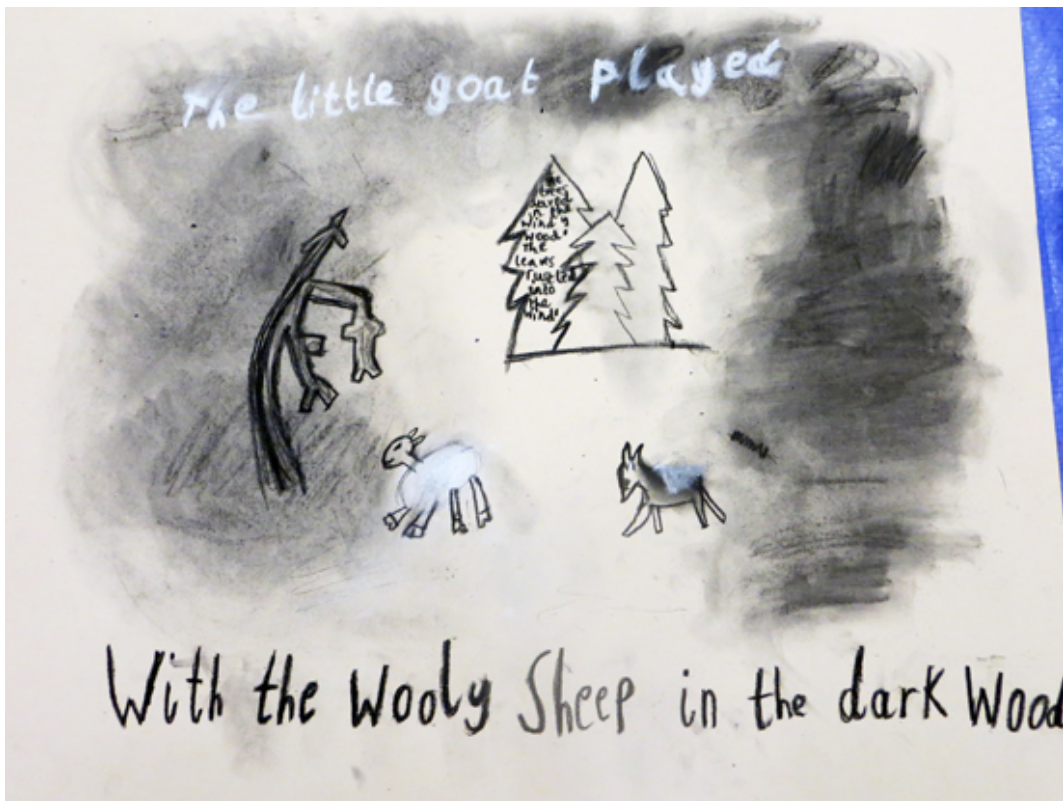 The little goat played
the
trees
in the
windy
wood'
the
leavs
rustled
into
the
wind'
With the Wooly Sheep in the dark Wood